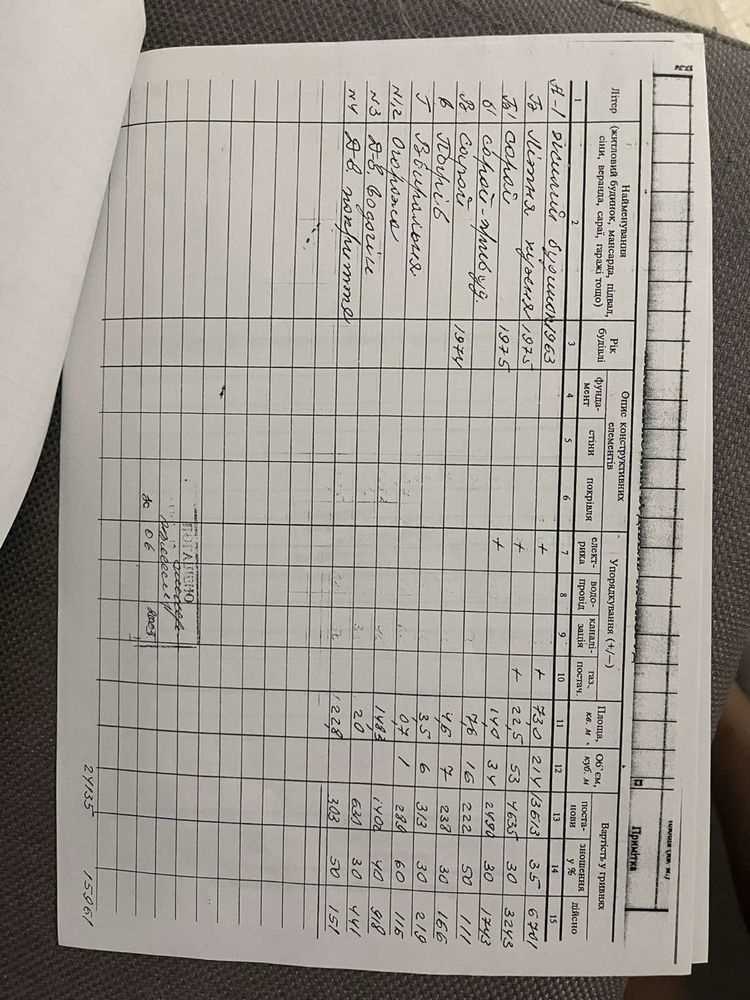 Примітка
Літер
Найменування
(житловий будинок, мансарда, підвал,
сіни, веранда, сараї, гаражі тощо)
Рік
будівлі
Опис конструктивних
елементів
фунда-
мент
стіни
покрівля
Упорядкування (+/—)
елект-
рика
водо-
провід
каналі-
зація
газ.
постач.
Площа,
кв. м
Об'єм,
куб. м
Вартість у гривнях
поста-
нови
зношення
у %
дійсно
1 2 3 4 5 6 7 8 9 10 11 12 13 14 15
А-1 житловий будинок 1963 + + 73,0 214 13613 35
Б Літня кухня 1975 + + 22,5 53 4635 30 3243
Б' сарай 1975 + 14,0 34 2490 30 1743
б' сарай-прибуд. 7,6 16 222 50 111
В Сарай 1974 4,5 7 238 30 166
в Погріб 3,5 6 313 30 219
Г Вбиральня 0,7 1 286 60 115
N1,2 Огорожа 1402 40 918
N3 Д-в водогін 2,0 630 30 441
N4 Д-в покриття 122,8 303 50 151
ПОГАШЕНО
06
24135 15961